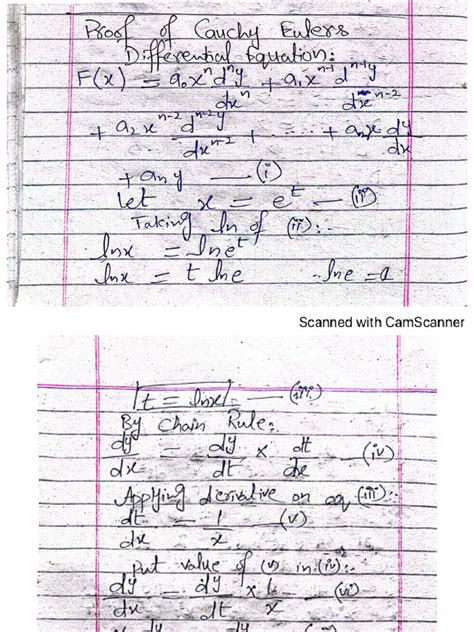 Proof of Cauchy Eulers
Differential Equation:
F(x) = a₀xⁿ dⁿy/dxⁿ + a₁xⁿ⁻¹ dⁿ⁻¹y/dxⁿ⁻²
+ a₂xⁿ⁻² dⁿ⁻²y/dxⁿ⁻² + ...... + aₙx dy/dx
+ aₙy — (i)
Let x = eᵗ — (ii)
Taking ln of (ii):-
lnx = lneᵗ
lnx = t lne ∴ lne = 1
Scanned with CamScanner
t = lnx — (iii)
By Chain Rule:
dy/dx = dy/dt × dt/dx — (iv)
Applying derivative on eq (iii):-
dt/dx = 1/x — (v)
put value of (v) in (iv):-
dy/dx = dy/dt × 1/x — (vi)